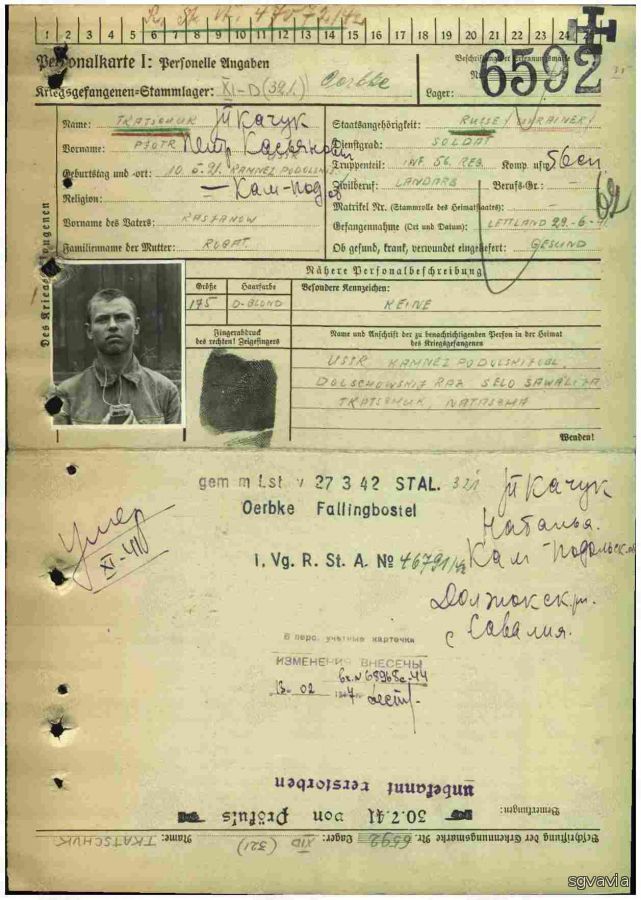 R. St. Nr. 47072/42
1 2 3 4 5 6 7 8 9 10 11 12 13 14 15 16 17 18 19 20 21 22 23 24
Personalkarte I: Personelle Angaben
Kriegsgefangenen-Stammlager: XI-D (321) Oerbke
Beschriftung der Erkennungsmarke
Nr. 6592
Lager:
Des Kriegsgefangenen
Name: TKATSCHUK Ткачук
Vorname: PJOTR Петр Касьянович
Geburtstag und -ort: 10.5.21. KAMNEZ PODOLSKI USSR
Кам-Подол
Religion: —
Vorname des Vaters: KASJANOW
Familienname der Mutter:
Staatsangehörigkeit: RUSSE / UKRAINER /
Dienstgrad: SOLDAT
Truppenteil: INF. 56. REG. Komp. usw.: 56 сп
Zivilberuf: LANDARB. Berufs-Gr.: —
Matrikel Nr. (Stammrolle des Heimatstaates): —
Gefangennahme (Ort und Datum): LETTLAND 29.-6.-41.
Ob gesund, krank, verwundet eingeliefert: GESUND
62
Nähere Personalbeschreibung
Größe Haarfarbe Besondere Kennzeichen:
175 D-BLOND KEINE
Fingerabdruck
des rechten! Zeigefingers
Name und Anschrift der zu benachrichtigenden Person in der Heimat
des Kriegsgefangenen
USSR KAMNEZ PODOLSKI OBL.
DOLSCHOWSKIJ RAJ. SELO SAWALIJA
TKATSCHUK, NATASCHA
Wenden!
gem m Lst v 27 3 42 STAL. 321
Oerbke Fallingbostel
i. Vg. R. St. A. № 46791/42
Ткачук
Наталья.
Кам-Подольск. об
Должокск. рн.
с Савалия.
Умер
XI-41
В перс. учетные карточки
ИЗМЕНЕНИЯ ВНЕСЕНЫ
вх. N 68968с-44
13. 02 1947г.
unbekannt verstorben
30.7.41 von Pröfuls
Bemerkungen:
Beschriftung der Erkennungsmarke Nr. 6592 Lager: XID (321) Name: TKATSCHUK
sgvavia